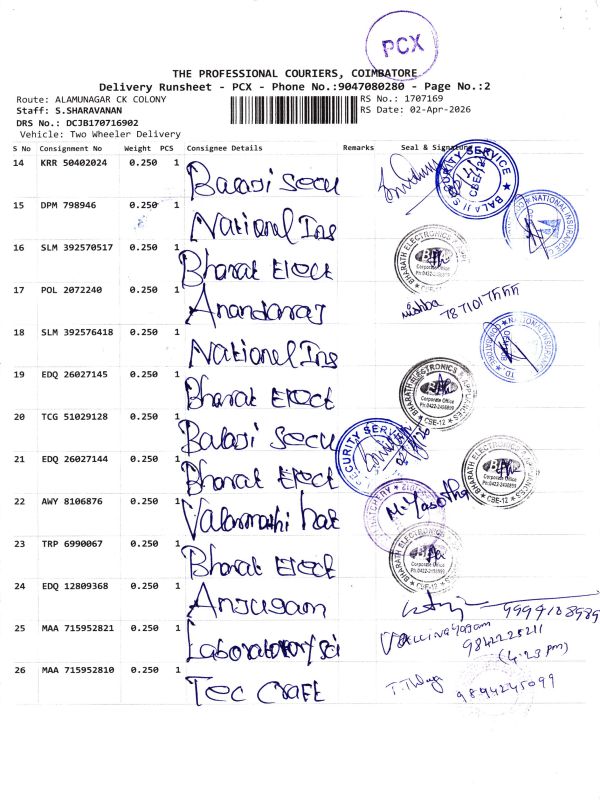 PCX
THE PROFESSIONAL COURIERS, COIMBATORE
Delivery Runsheet - PCX - Phone No.:9047080280 - Page No.:2
Route: ALAMUNAGAR CK COLONY RS No.: 1707169
Staff: S.SHARAVANAN RS Date: 02-Apr-2026
DRS No.: DCJB170716902
Vehicle: Two Wheeler Delivery
S No Consignment No Weight PCS Consignee Details Remarks Seal & Signature
14 KRR 50402024 0.250 1 Balaji Secu
BALAJI SECURITY SERVICE
15 DPM 798946 0.250 1 National Ins
NATIONAL INSURANCE
16 SLM 392570517 0.250 1 Bharat Elect
BHARATH ELECTRONICS & Corporate Office
17 POL 2072240 0.250 1 Anandaraj
nishba
18 SLM 392576418 0.250 1 National Ins
19 EDQ 26027145 0.250 1 Bharat Elect
BHARATH ELECTRONICS & APPLIANCES Corporate Office Ph:0422-2498899 CBE-12
20 TCG 51029128 0.250 1 Balaji Secu
SECURITY SERVICE
21 EDQ 26027144 0.250 1 Bharat Elect
BHARATH ELECTRONICS & APPLIANCES Corporate Office CBE-12
22 AWY 8106876 0.250 1 Valarmathi hat
M. Yasotha
23 TRP 6990067 0.250 1 Bharat Elect
BHARATH ELECTRONICS Corporate Office
24 EDQ 12809368 0.250 1 Anjugam
25 MAA 715952821 0.250 1 Laboratory Sci
9842225211
(4:23 pm)
26 MAA 715952810 0.250 1 Tec Craft
9894245099